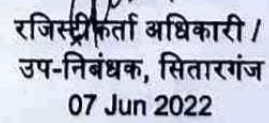 रजिस्ट्रीकर्ता अधिकारी /
उप-निबंधक, सितारगंज
07 Jun 2022